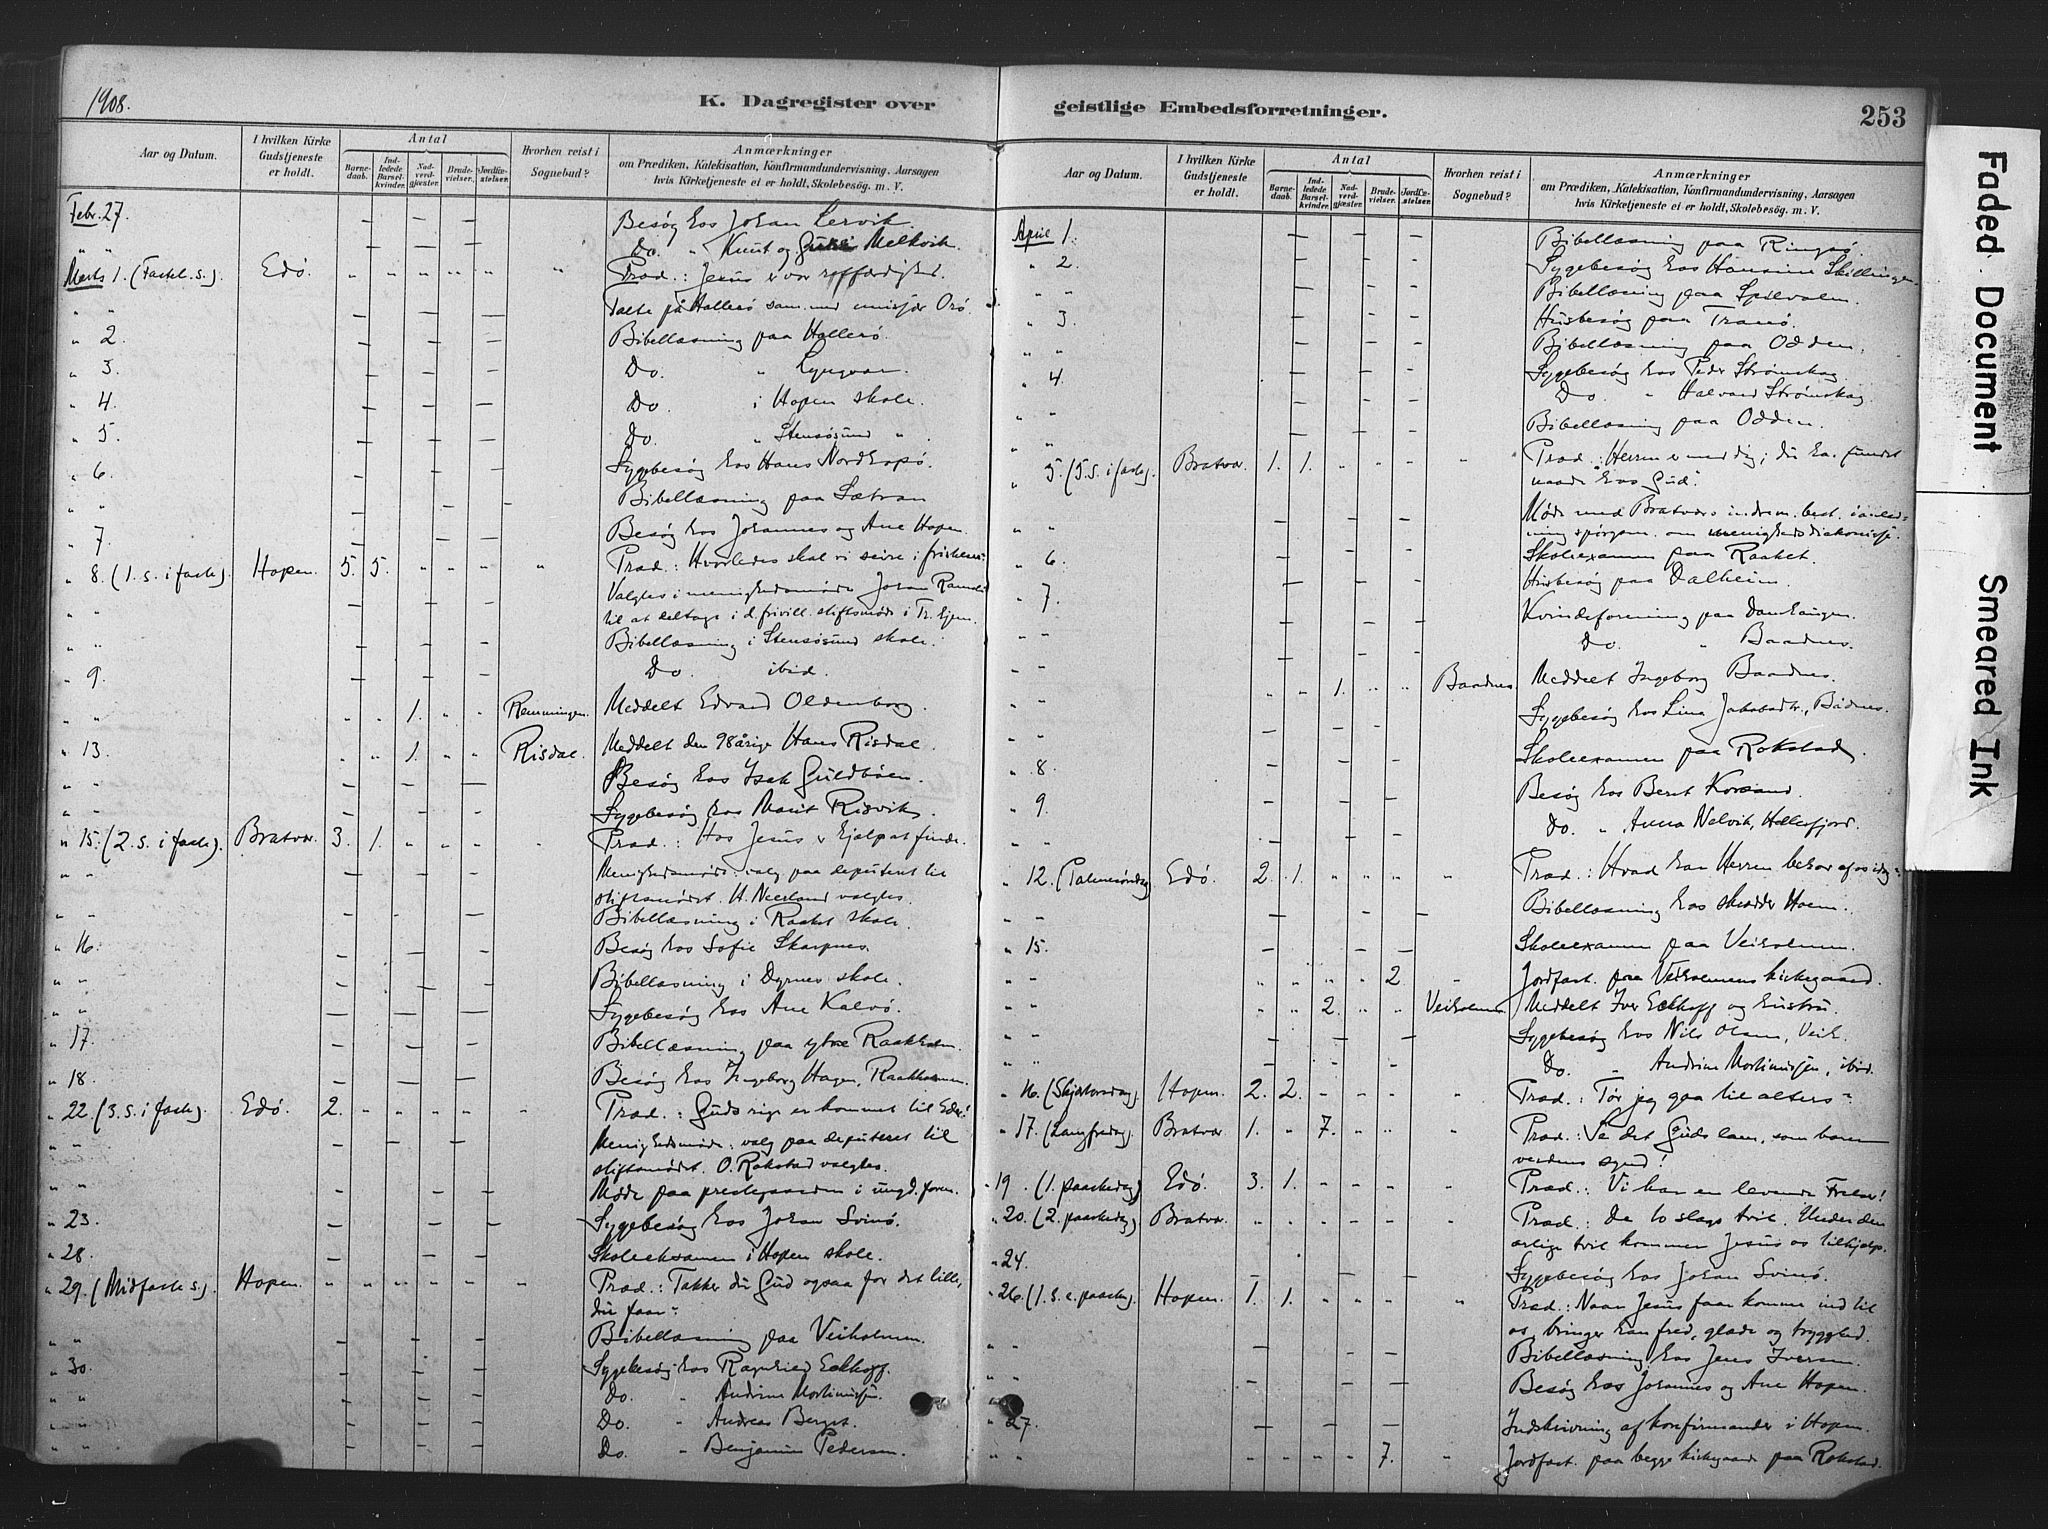 1908.
K. Dagregister over
geistlige Embedsforretninger.
253
Aar og Datum.
I hvilken Kirke Gudstjeneste er holdt.
Antal
Barnedaab.
Indledede Barselkvinder.
Nadverdgjæster.
Brudevielser.
Jordfæstelser.
Hvorhen reist i Sognebud?
Anmærkninger
om Prædiken, Katekisation, Konfirmandundervisning, Aarsagen
hvis Kirketjeneste ei er holdt, Skolebesøg. m. V.
Febr. 27. Besøg hos Johan Lervik
" " Do. " Knut og Melkvik.
Marts 1. (Fastel. s.) Edø. " " " " " " Præd.: Jesus er vor retfærdighed.
" " Talte på Hallerø sam. med Orø.
" 2. Bibellæsning paa Hallerø.
" 3. Do. "
" 4. Do. i Hopen skole.
" 5. Do. " Stensøsund "
" 6. Sygebesøg hos Hans Nordhopø.
" " Bibellæsning paa Sætran
" 7. Besøg hos Johannes og Ane Hopen.
" 8. (1. s. i faste). Hopen. 5. 5. " " " " Præd.: Hvorledes skal vi seire i fristelsen?
" " Valgtes i menighedsmøde Johan
til at deltage i d. frivill. stiftsmøde i Tr.hjem.
" " Bibellæsning i Stensøsund skole.
" 9. Do. ibid.
" " " " 1. " " Remmingen. Meddelt Edvard Oldenborg.
" 13. " " 1. " " Risdal. Meddelt den 98årige Hans Risdal.
" " Besøg hos Isak Guldbøen.
" " Sygebesøg hos Marit Risvik.
" 15. (2. s. i faste). Bratvær. 3. 1. " " " " Præd.: Hos Jesus er hjælp at finde.
" " Menighedsmøde: valg paa deputeret til
stiftsmødet. H. Neerland valgtes.
" " Bibellæsning i Raaket skole.
" 16. Besøg hos Sofie Skarpnes.
" " Bibellæsning i Dyrnes skole.
" " Sygebesøg hos Ane Kalvø.
" 17. Bibellæsning paa ytre Raakholm.
" 18. Besøg hos Ingeborg Hagen, Raakholmen.
" 22. (3. s. i faste). Edø. 2. " " " " " Præd.: Guds rige er kommet til Eder!
" " Menighedsmøde: valg paa deputeret til
stiftsmødet. O. Rokstad valgtes.
" " Møde paa prestegaarden i ungd. foren.
" 23. Sygebesøg hos Johan Svinø.
" 28. Skoleeksamen i Hopen skole.
" 29. (Midfaste s.). Hopen. " " " " " " Præd.: Takker du Gud ogsaa for det lille,
du faar?
" " Bibellæsning paa Veiholmen.
" 30. Sygebesøg hos Ragnhild Eckhoff.
" " Do. " Andrine Mortinussen.
" " Do. " Andreas Berget.
" " Do. " Benjamin Pedersen.
Aar og Datum.
I hvilken Kirke Gudstjeneste er holdt.
Antal
Barnedaab.
Indledede Barselkvinder.
Nadverdgjæster.
Brudevielser.
Jordfæstelser.
Hvorhen reist i Sognebud?
Anmærkninger
om Prædiken, Katekisation, Konfirmandundervisning, Aarsagen
hvis Kirketjeneste ei er holdt, Skolebesøg. m. V.
April 1. Bibellæsning paa Ringsø.
" 2. Sygebesøg hos Hansine Skillingen.
" " Bibellæsning paa Spilvalen.
" 3. Husbesøg paa Tranø.
" " Bibellæsning paa Odden.
" 4. Sygebesøg hos Peder Strømskag
" " Do. " Halvard Strømskag.
" " Bibellæsning paa Odden.
" 5. (5. s. i faste). Bratvær. 1. 1. " " " " Præd.: "Herren er med dig; du har fundet
naade hos Gud."
" " Møde med Bratværs indrem. best. i anledning
spørgsm. om menighedsdiakonisse.
" 6. Skoleexamen paa Raaket.
Husbesøg paa Dalheim.
" 7. Kvindeforening paa
" " Do. " Baadnes.
" " " " 1. " " Baadnes. Meddelt Ingeborg Baadnes.
" " Sygebesøg hos Lina Jakobsdtr., Bådnes.
" " Skoleexamen paa Rokstad.
" 8. Besøg hos Berit Korsand.
" 9. Do. " Anna Nelvik, Hallesfjord.
" 12. (Palmesøndag) Edø. 2. 1. " " " " Præd.: Hvad har Herren behov af os idag?
" " Bibellæsning hos skrædder Hoem.
" 15. Skoleexamen paa Veiholmen.
" " " " " " 2 " Jordfæst. paa Veiholmens kirkegaard.
" " " " 2. " " Veiholmen Meddelt Iver Eckhoff og hustru.
" " Sygebesøg hos Nils Olsen, Veih.
" " Do. " Andrine Mortinussen, ibid.
" 16. (Skjærtorsdag). Hopen. 2. 2. " " " " Præd.: Tør jeg gaa til alters?
" 17. (Langfredag). Bratvær. 1. " 7. " " " Præd.: Se det Guds lam, som barer
verdens synd!
" 19. (1. paaskedag) Edø. 3. 1. " " " " Præd.: Vi har en levende Frelser!
" 20. (2. paaskedag) Bratvær. " " " " " " Præd.: De to slags tvil. Under den
ærlige tvil kommer Jesus os tilhjælp.
" 24. Sygebesøg hos Johan Svinø.
" 26. (1. s. e. paaske). Hopen. 1. 1. " " " " Præd.: Naar Jesus faar komme ind til
os, bringer han fred, glæde og tryghed.
" " Bibellæsning hos Jens Iversen.
" " Besøg hos Johannes og Ane Hopen.
" 27. Indskrivning af konfirmander i Hopen.
" " " " " " 7. " Jordfæst. paa begge kirkegaarde paa Rokstad.
Faded Document
Smeared Ink